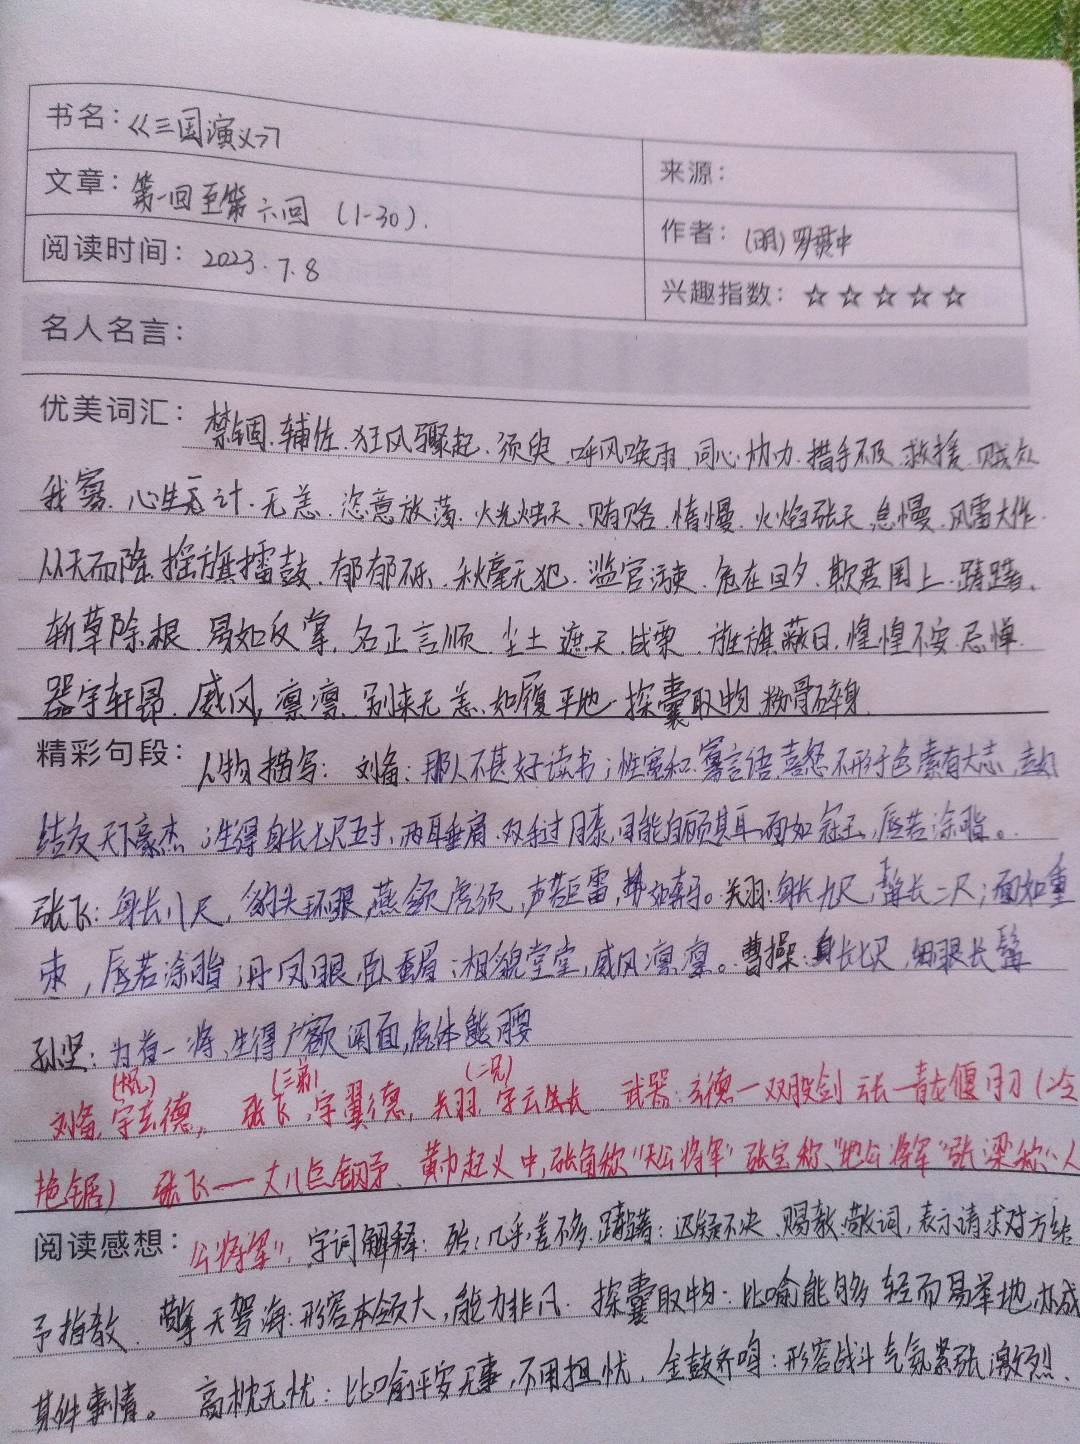 书名：《三国演义》
来源：
文章：第一回至第六回（1-30）.
作者：(明)罗贯中
阅读时间：2023.7.8
兴趣指数：☆☆☆☆☆
名人名言：
优美词汇：禁锢.辅佐.狂风骤起.须臾.呼风唤雨.同心协力.措手不及.救援.贼众
我寡.心生一计.无恙.恣意放荡.火光烛天.贿赂.惰慢.火焰张天.怠慢.风雷大作.
从天而降.摇旗擂鼓.郁郁不乐.秋毫无犯.滥官污吏.危在旦夕.欺君罔上.踌躇.
斩草除根.易如反掌.名正言顺.尘土遮天.战栗.旌旗蔽日.惶惶不安.忌惮.
器宇轩昂.威风凛凛.别来无恙.如履平地.探囊取物.粉骨碎身.
精彩句段：人物描写：刘备：那人不甚好读书；性宽和.寡言语.喜怒不形于色.素有大志,专好
结交天下豪杰；生得身长七尺五寸,两耳垂肩.双手过膝,目能自顾其耳.面如冠玉,唇若涂脂。
张飞：身长八尺，豹头环眼,燕颔虎须,声若巨雷,势如奔马。关羽：身长九尺,髯长二尺；面如重
枣，唇若涂脂；丹凤眼,卧蚕眉；相貌堂堂,威风凛凛。曹操：身长七尺,细眼长髯
孙坚：为首一将、生得广额阔面,虎体熊腰
(三弟) (二兄)
刘备,字玄德, 张飞,字翼德, 关羽,字云长 武器：玄德—双股剑 云长—青龙偃月刀（冷
艳锯） 张飞——丈八点钢矛、黄巾起义中,张角称“天公将军”张宝称“地公将军”张梁称“人
公将军”.
阅读感想：字词解释：殆：几乎,差不多.踌躇：迟疑不决.赐教.敬词,表示请求对方给
予指教. 擎天驾海:形容本领大,能力非凡. 探囊取物:比喻能够轻而易举地,办成
某件事情。 高枕无忧：比喻平安无事,不用担忧. 金鼓齐鸣：形容战斗气氛紧张激烈.